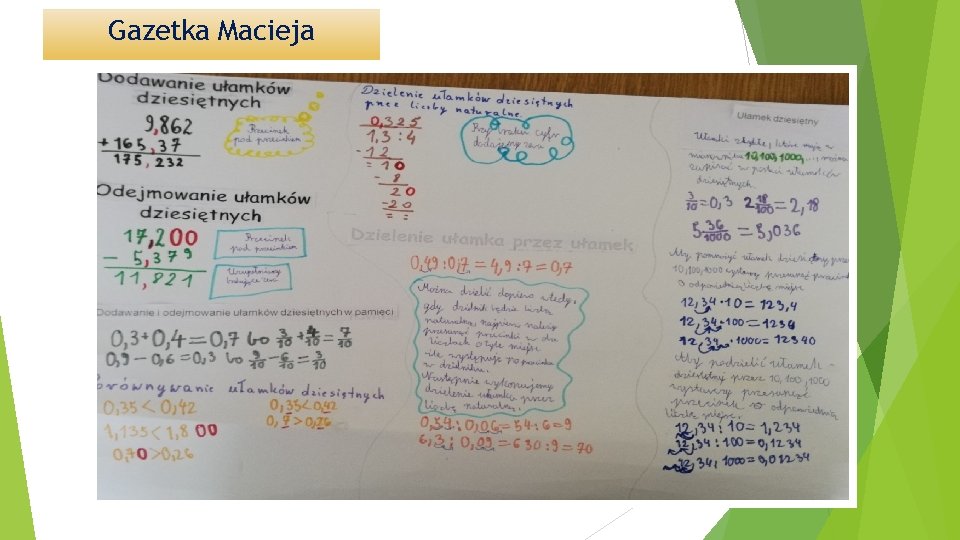 Gazetka Macieja
Dodawanie ułamków
dziesiętnych
9,862
+ 165,37
175,232
Przecinek
pod przecinkiem
Odejmowanie ułamków
dziesiętnych
17,200
- 5,379
11,821
Przecinek
pod przecinkiem
Uzupełniamy
brakujące zera
Dodawanie i odejmowanie ułamków dziesiętnych w pamięci
0,3+0,4=0,7 bo 3/10+4/10=7/10
0,9-0,6=0,3 bo 9/10-6/10=3/10
Porównywanie ułamków dziesiętnych
0,35<0,42
1,135<1,800
0,70>0,26
0,35<0,42
0,7>0,26
Dzielenie ułamków dziesiętnych
przez liczby naturalne.
0,325
1,3:4
-12
= 10
- 8
20
-20
= =
Przy braku cyfr
dodajemy zera
Dzielenie ułamka przez ułamek
0,49:0,7=4,9:7=0,7
Można dzielić dopiero wtedy,
gdy dzielnik będzie liczbą
naturalną, najpierw należy
przesunąć przecinki w obu
liczbach o tyle miejsc
ile występuje po przecinku
w dzielniku.
Następnie wykonujemy
dzielenie ułamka przez
liczbę naturalną.
0,54:0,06=54:6=9
6,3:0,09=630:9=70
Ułamek dziesiętny
Ułamki zwykłe, które mają w
mianowniku 10,100,1000,..., można
zapisać w postaci ułamków
dziesiętnych.
3/10=0,3 2 18/100=2,18
5 36/1000=5,036
Aby pomnożyć ułamek dziesiętny przez
10,100,1000 przesunąć przecinek
o odpowiednią liczbę miejsc
12,34·10=123,4
12,34·100=1234
12,34·1000=12340
Aby podzielić ułamek
dziesiętny przez 10,100,1000
wystarczy przesunąć
przecinek o odpowiednią
liczbę miejsc.
12,34:10=1,234
12,34:100=0,1234
12,34:1000=0,01234